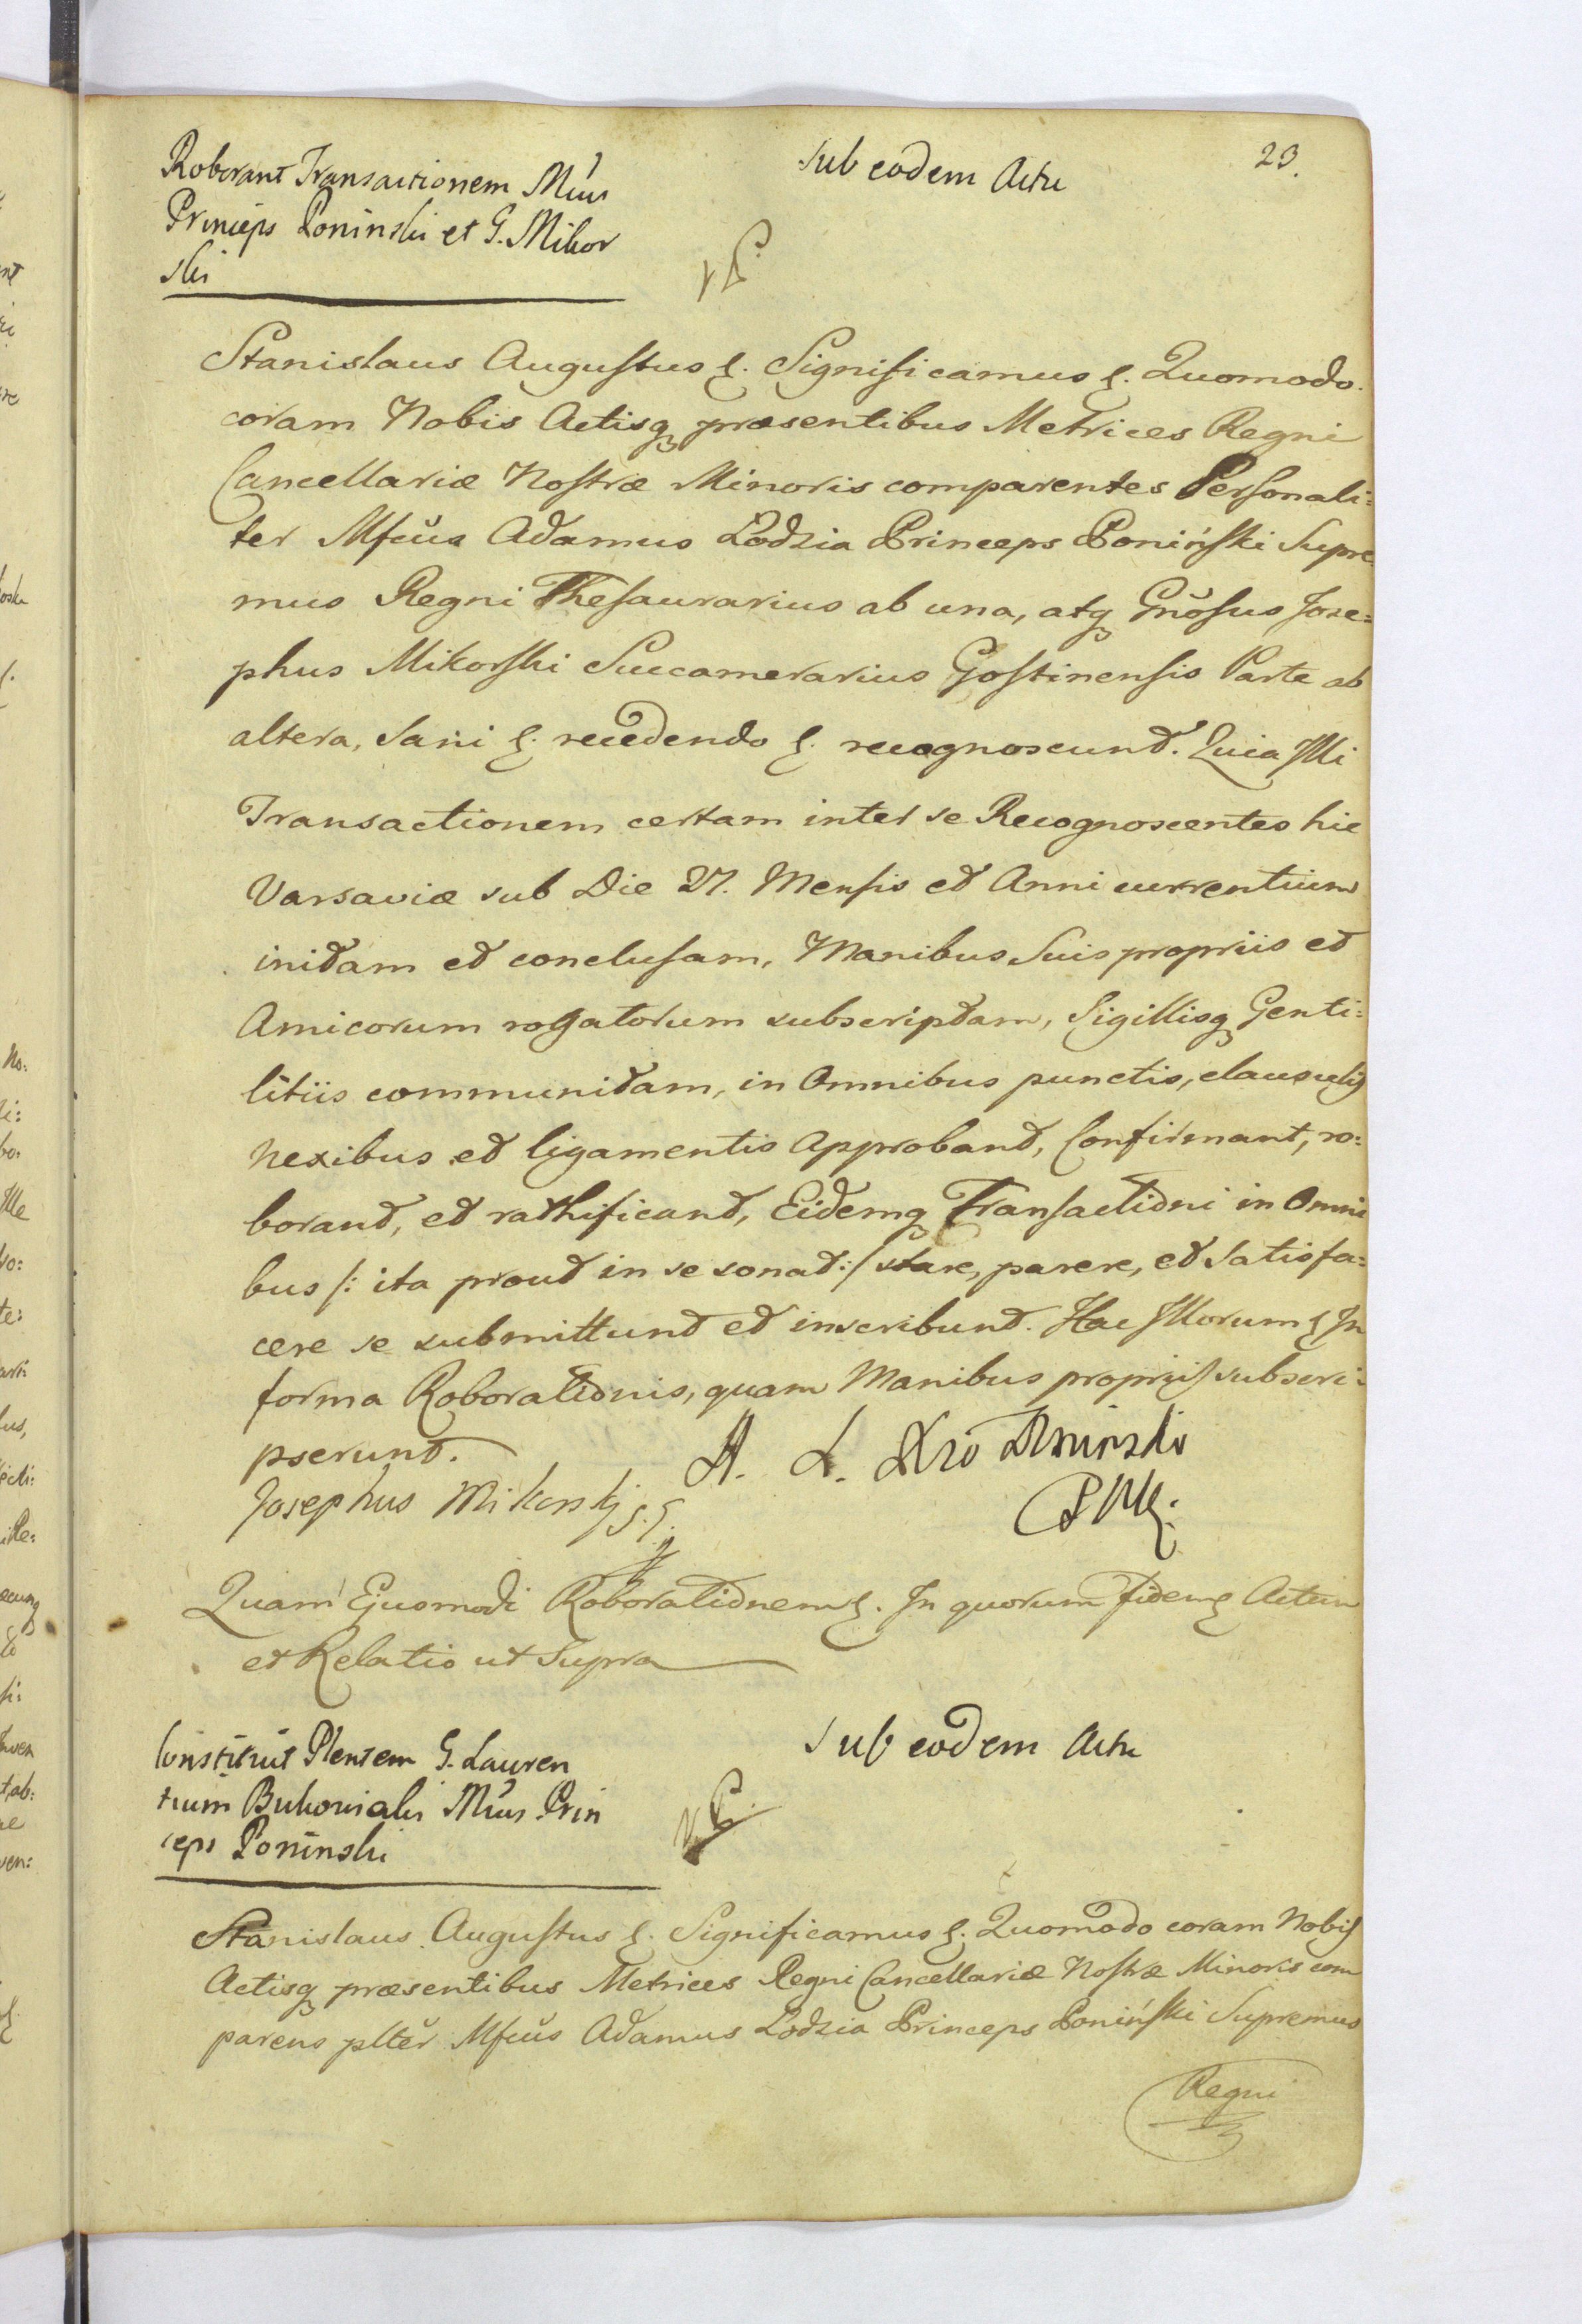 23.
Roborant Transactionem Mcus
Princeps Poninski et G. Mikor
ski
sub eodem Actu
Stanislaus Augustus &. Significamus &. Quomodo
coram Nobis Actisq præsentibus Metrices Regni
Cancellariæ Nostræ Minoris comparentes Personali=
ter Mfcus Adamus Lodzia Princeps Poniński Supre
mus Regni Thesaurarius ab una, atq Gnosus Jose=
phus Mikorski Succamerarius Gostinensis Parte ab
altera, Sani &. recedendo &. recognoscunt. Quia Illi
Transactionem certam inter se Recognoscentes hic
Varsaviæ sub Die 27. Mensis et Anni currentium
initam et conclusam, Manibus Suis propriis et
Amicorum rogatorum subscriptam, Sigillisq Genti=
litiis communitam, in Omnibus punctis, clausulis
nexibus et ligamentis Approbant, Confirmant, ro=
borant, et rathificant, Eidemq Transactioni in Omni
bus /: ita prout in se sonat :/ stare, parere, et Satisfa=
cere se submittunt et inscribunt. Hac Illorum & In
forma Roborationis, quam Manibus propriis subscri=
pserunt.
A. L. Xże Poninski
Josephus Mikorskj S. G.
Quam Ejusmodi Roborationem &. In quorum fidem & Actum
et Relatio ut Supra
Constituit Plentem G. Lauren
tium Bukowialki Mcus Prin
ceps Poninski
Sub eodem Actu
Stanislaus Augustus &. Significamus &. Quomodo coram Nobis
Actisq præsentibus Metrices Regni Cancellariæ Nostræ Minoris com
parens plter Mfcus Adamus Lodzia Princeps Poniński Supremus
Regni